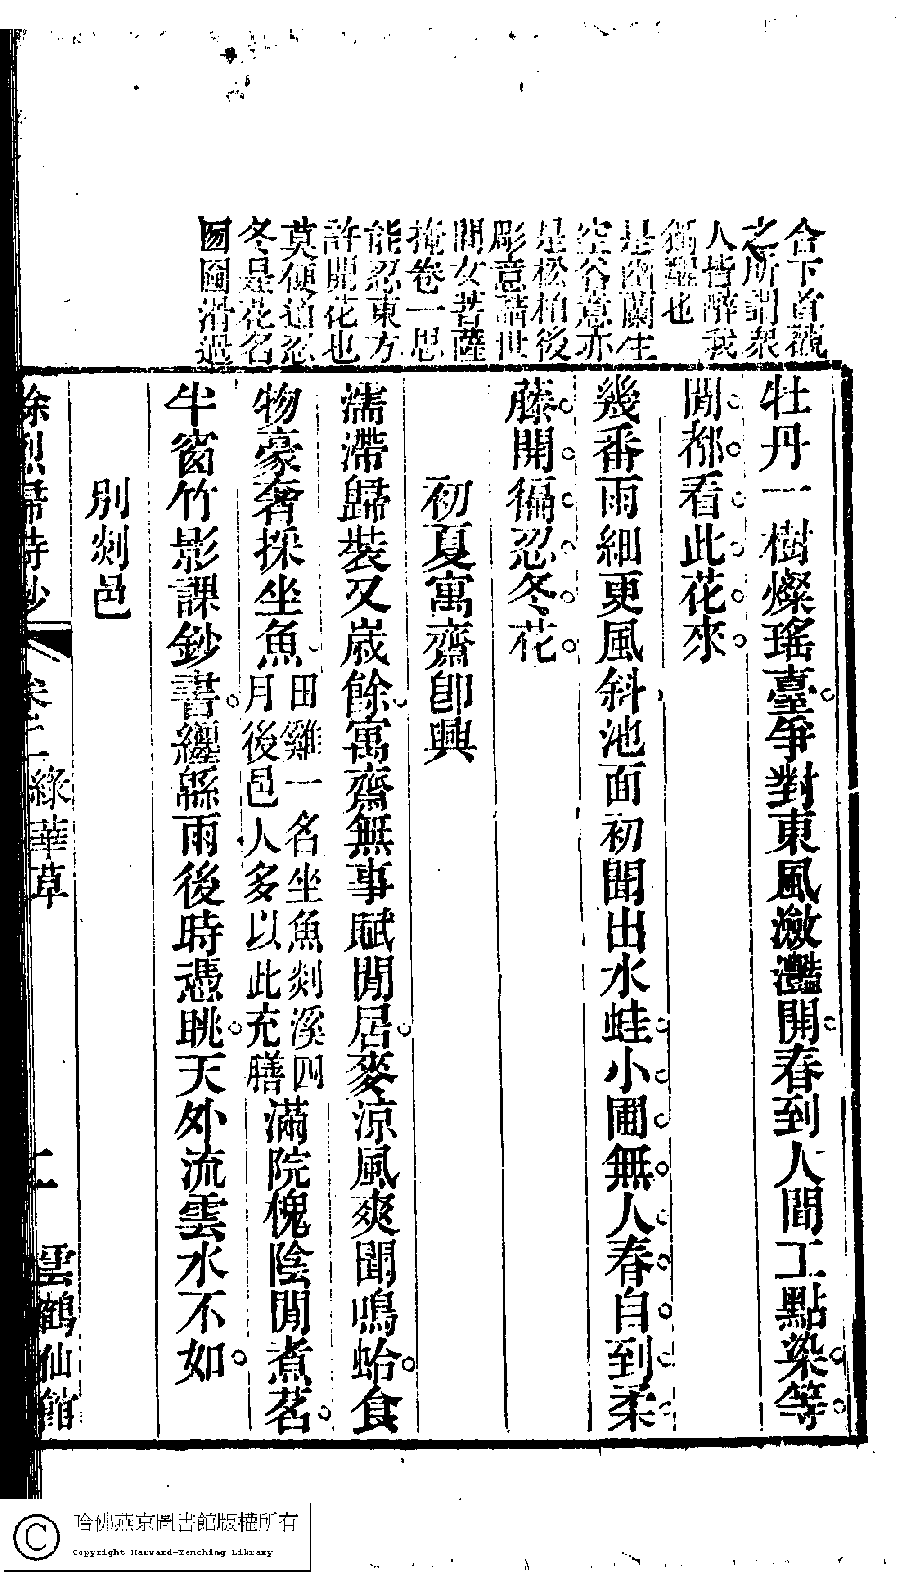 合下首觀
之所謂衆
人皆醉我
獨醒也
是幽蘭生
空谷意亦
是松柏後
彫意喆世
間女菩薩
掩卷一思
能忍東方
許開花也
莫便道忍
冬是花名
囫圇滑過
牡丹一樹燦瑤臺爭對東風瀲灩開春到人間工點染等
閒都看此花來
幾番雨細更風斜池面初聞出水蛙小圃無人春自到柔
藤開徧忍冬花
初夏寓齋卽興
濡滯歸裝又歲餘寓齋無事賦閒居麥涼風爽聞鳴蛤食
物豪奢採坐魚田雞一名坐魚剡溪四月後邑人多以此充膳滿院槐陰閒煮茗
牛窗竹影課鈔書纏緜雨後時憑眺天外流雲水不如
別剡邑
綠華草
二
雲鶴仙館
哈佛燕京圖書館版權所有
Copyright Harvard-Yenching Library